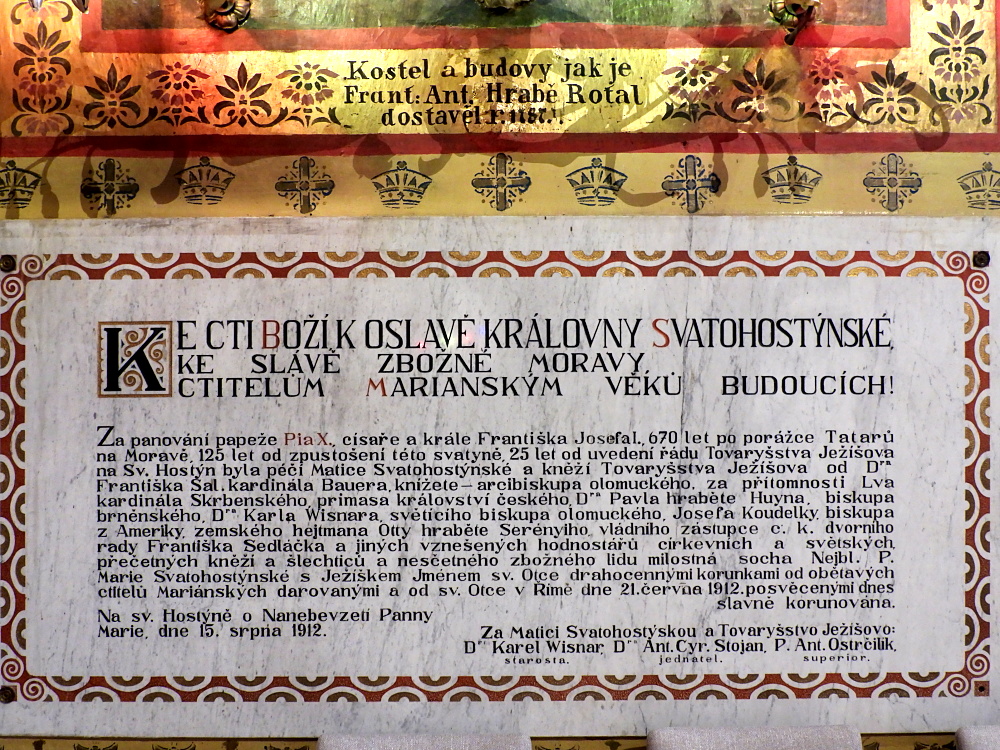 Kostel a budovy jak je
Frant: Ant. Hrabě Rotal
dostavěl
KE CTI BOŽÍ, K OSLAVĚ KRÁLOVNY SVATOHOSTÝNSKÉ,
KE SLÁVĚ ZBOŽNÉ MORAVY,
CTITELŮM MARIANSKÝM VĚKŮ BUDOUCÍCH!
Za panování papeže Pia X., císaře a krále Františka Josefa I., 670 let po porážce Tatarů
na Moravě, 125 let od zpustošení této svatyně, 25 let od uvedení řádu Tovaryšstva Ježíšova
na Sv. Hostýn byla péčí Matice Svatohostýnské a kněží Tovaryšstva Ježíšova od Dra
Františka Sal. kardinála Bauera, knížete-arcibiskupa olomuckého, za přítomnosti Lva
kardinála Skrbenského, primasa království českého, Dra Pavla hraběte Huyna, biskupa
brněnského, Dra Karla Wisnara, světícího biskupa olomuckého, Josefa Koudelky, biskupa
z Ameriky, zemského hejtmana Otty hraběte Serényiho, vládního zástupce c. k. dvorního
rady Františka Sedláčka a jiných vznešených hodnostářů církevních a světských,
přečetných kněží a šlechticů a nesčetného zbožného lidu milostná socha Nejbl. P.
Marie Svatohostýnské s Ježíškem Jménem sv. Otce drahocennými korunkami od obětavých
ctitelů Mariánských darovanými a od sv. Otce v Římě dne 21. června 1912. posvěcenými dnes
slavně korunována.
Na sv. Hostýně o Nanebevzetí Panny
Marie, dne 15. srpna 1912.
Za Matici Svatohostýskou a Tovaryšstvo Ježíšovo:
Dr. Karel Wisnar, Dr. Ant. Cyr. Stojan, P. Ant. Ostrčilík,
starosta. jednatel. superior.